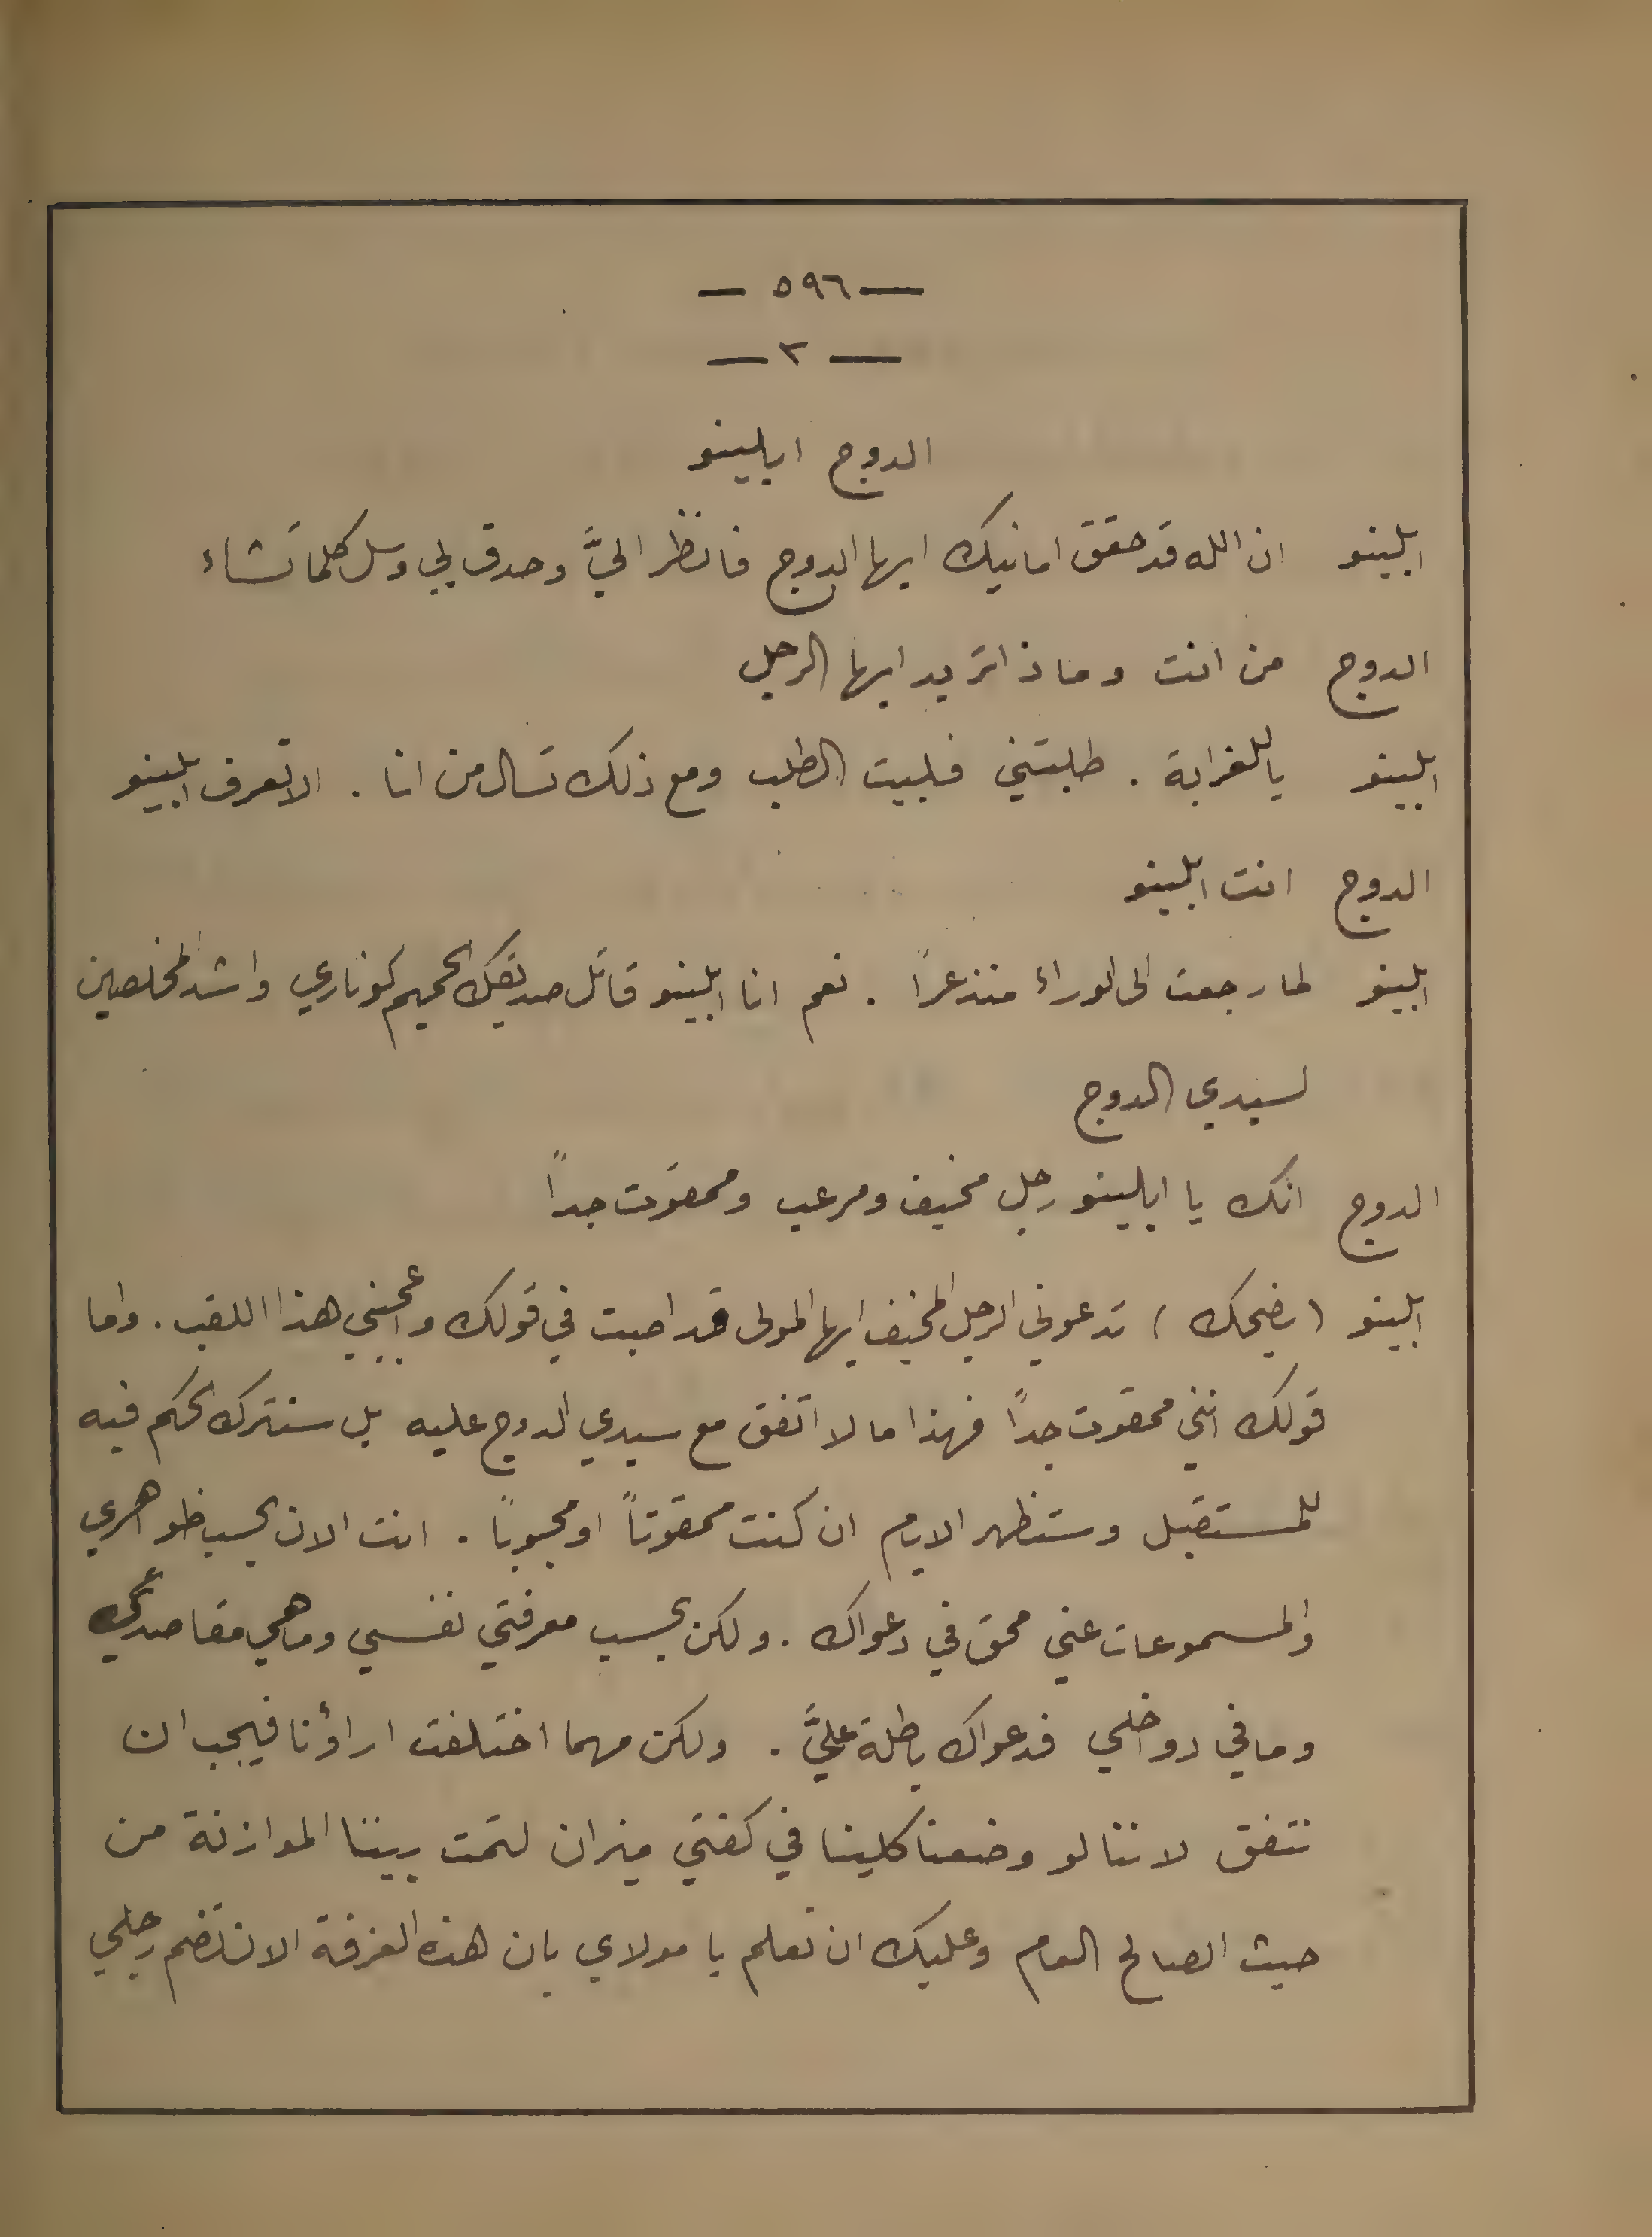 — ٥٩٦ —
— ٢ —
الدوج ابلينو
ابلينو ان الله قد حقق امانيك ايها الدوج فانظر اليَّ وحدق بي وسل كلما تشاء
الدوج من انت وماذا تريد ايها الرجل
ابلينو ياللغرابة . طلبتني فلبيت الطلب ومع ذلك تسال من انا . الا تعرف ابلينو
الدوج انت ابلينو
ابلينو لما رجعت الى الوراء منذعراً . نعم انا ابلينو قاتل صديقك الحميم كوناري واشد المخلصين
لسيدي الدوج
الدوج انك يا ابلينو رجل مخيف ومرعب وممقوت جداً
ابلينو (يضحك) تدعوني الرجل المخيف ايها المولى قد اصبت في قولك واعجبني هذا اللقب . واما
قولك انني ممقوت جداً فهذا ما لا اتفق مع سيدي الدوج عليه بل سنترك الحكم فيه
للمستقبل وستظهر الايام ان كنت ممقوتاً او محبوباً . انت الان بحسب ظواهري
والمسموعات عني محق في دعواك . ولكن بحسب معرفتي نفسي وما هي مقاصدي
وما في دواخلي فدعواك باطلة عليَّ . ولكن مهما اختلفت اراؤنا فيجب ان
نتفق لاننا لو وضعنا كلينا في كفتي ميزان لتمت بيننا الموازنة من
حيث الصالح العام وعليك ان تعلم يا مولاي بان هذه الغرفة الان تضم رجلي